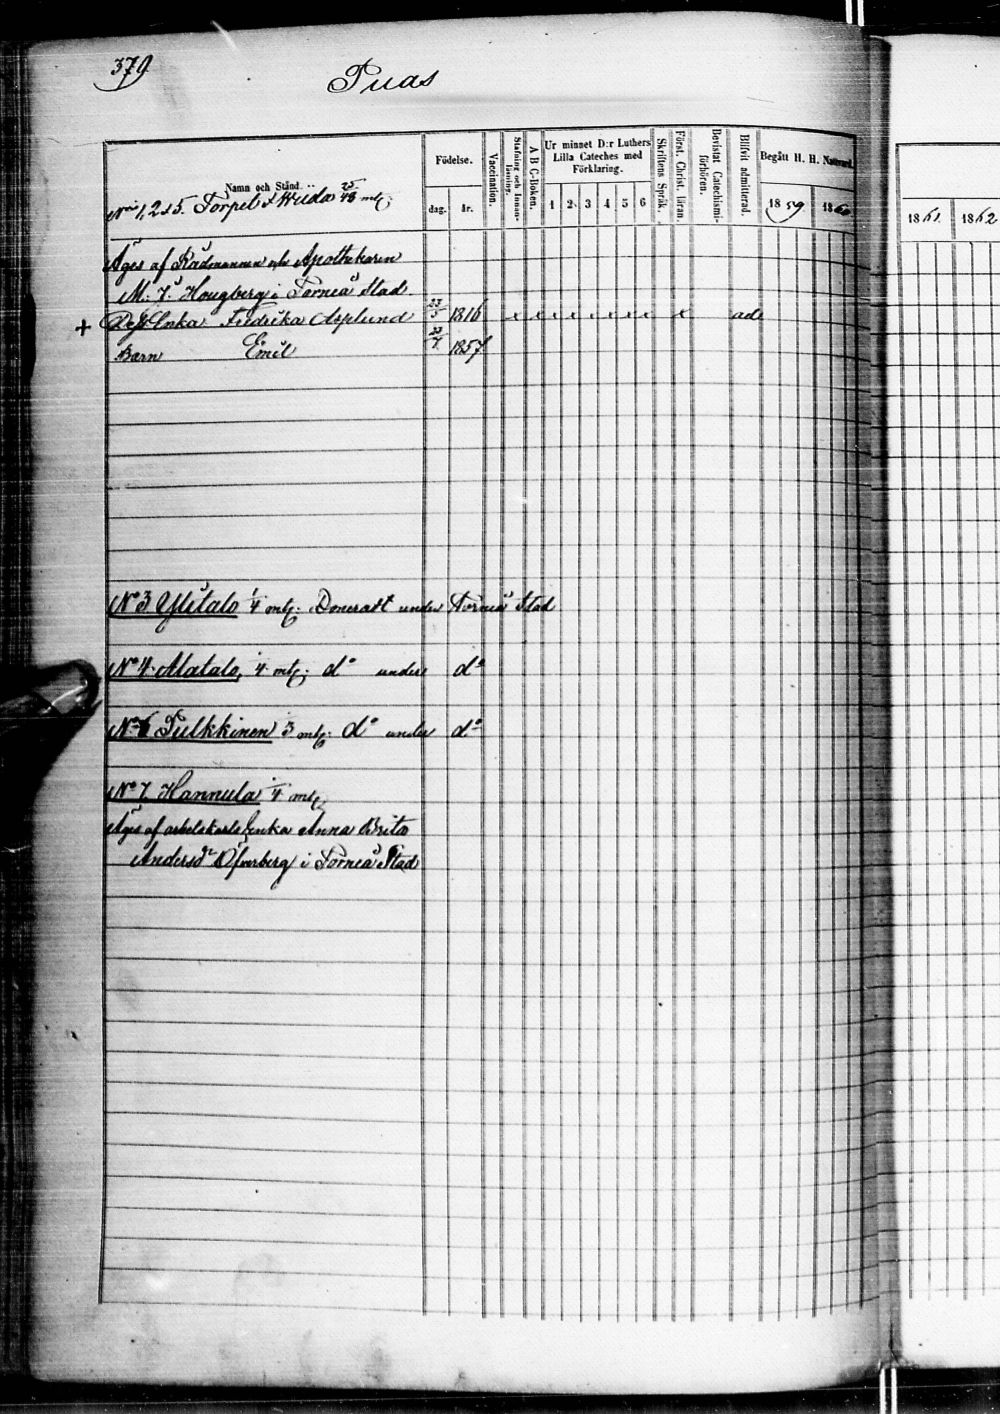 379
Puas
Namn och Stånd.
Födelse.
dag.
år.
Vaccination.
Stafning och Innan-läsning.
A B C-Boken.
Ur minnet D:r Luthers Lilla Cateches med Förklaring.
1 2 3 4 5 6
Skriftens Språk.
Först. Christ. läran.
Bevistat Catechismi-förhören.
Blifvit admitterad.
Begått H. H. Nattvard.
1859 1860 1861 1862
No 1, 2 & 5. Torpet 25/48 mtl.
Äges af Rådmannen och Apothekaren
M. J. Hougberg i Torneå Stad
+ Enka Fredrika Asplund 23/5 1816 x x x x x x x x x ad
Barn Emil 1857
No 3 Ylitalo 1/4 mtl. Doneradt under Torneå Stad
No 4 Alatalo, 1/4 mtl. do under do
No 6 Pulkkinen mtl. do under do
No 7 Hannula 1/4 mtl.
Äges af arbetskarls Enka Anna Brita
Andersdr Öfverberg i Torneå Stad